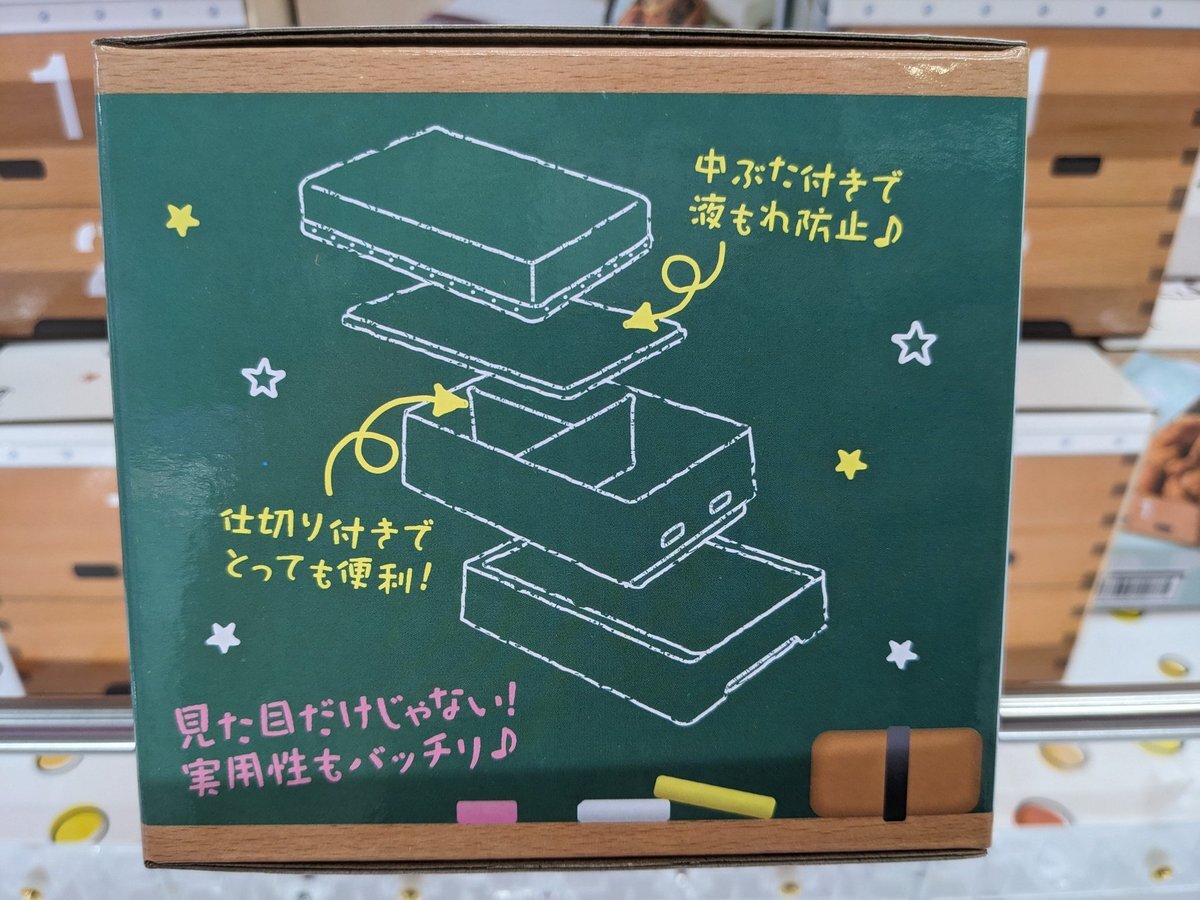 中ぶた付きで
液もれ防止♪
仕切り付きで
とっても便利!
見た目だけじゃない!
実用性もバッチリ♪
1